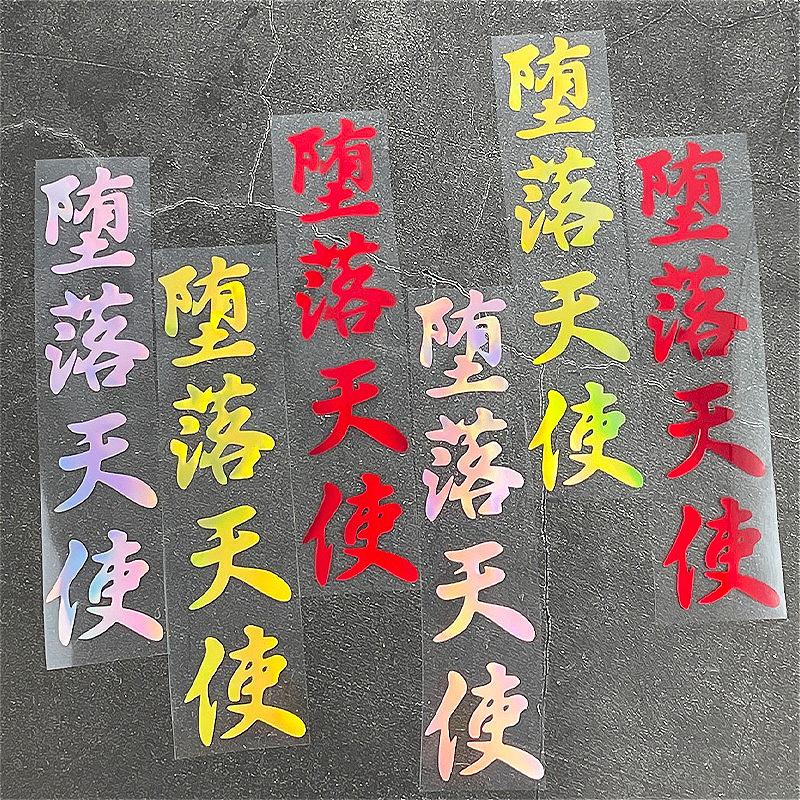 堕落天使
堕落天使
堕落天使
堕落天使
堕落天使
堕落天使